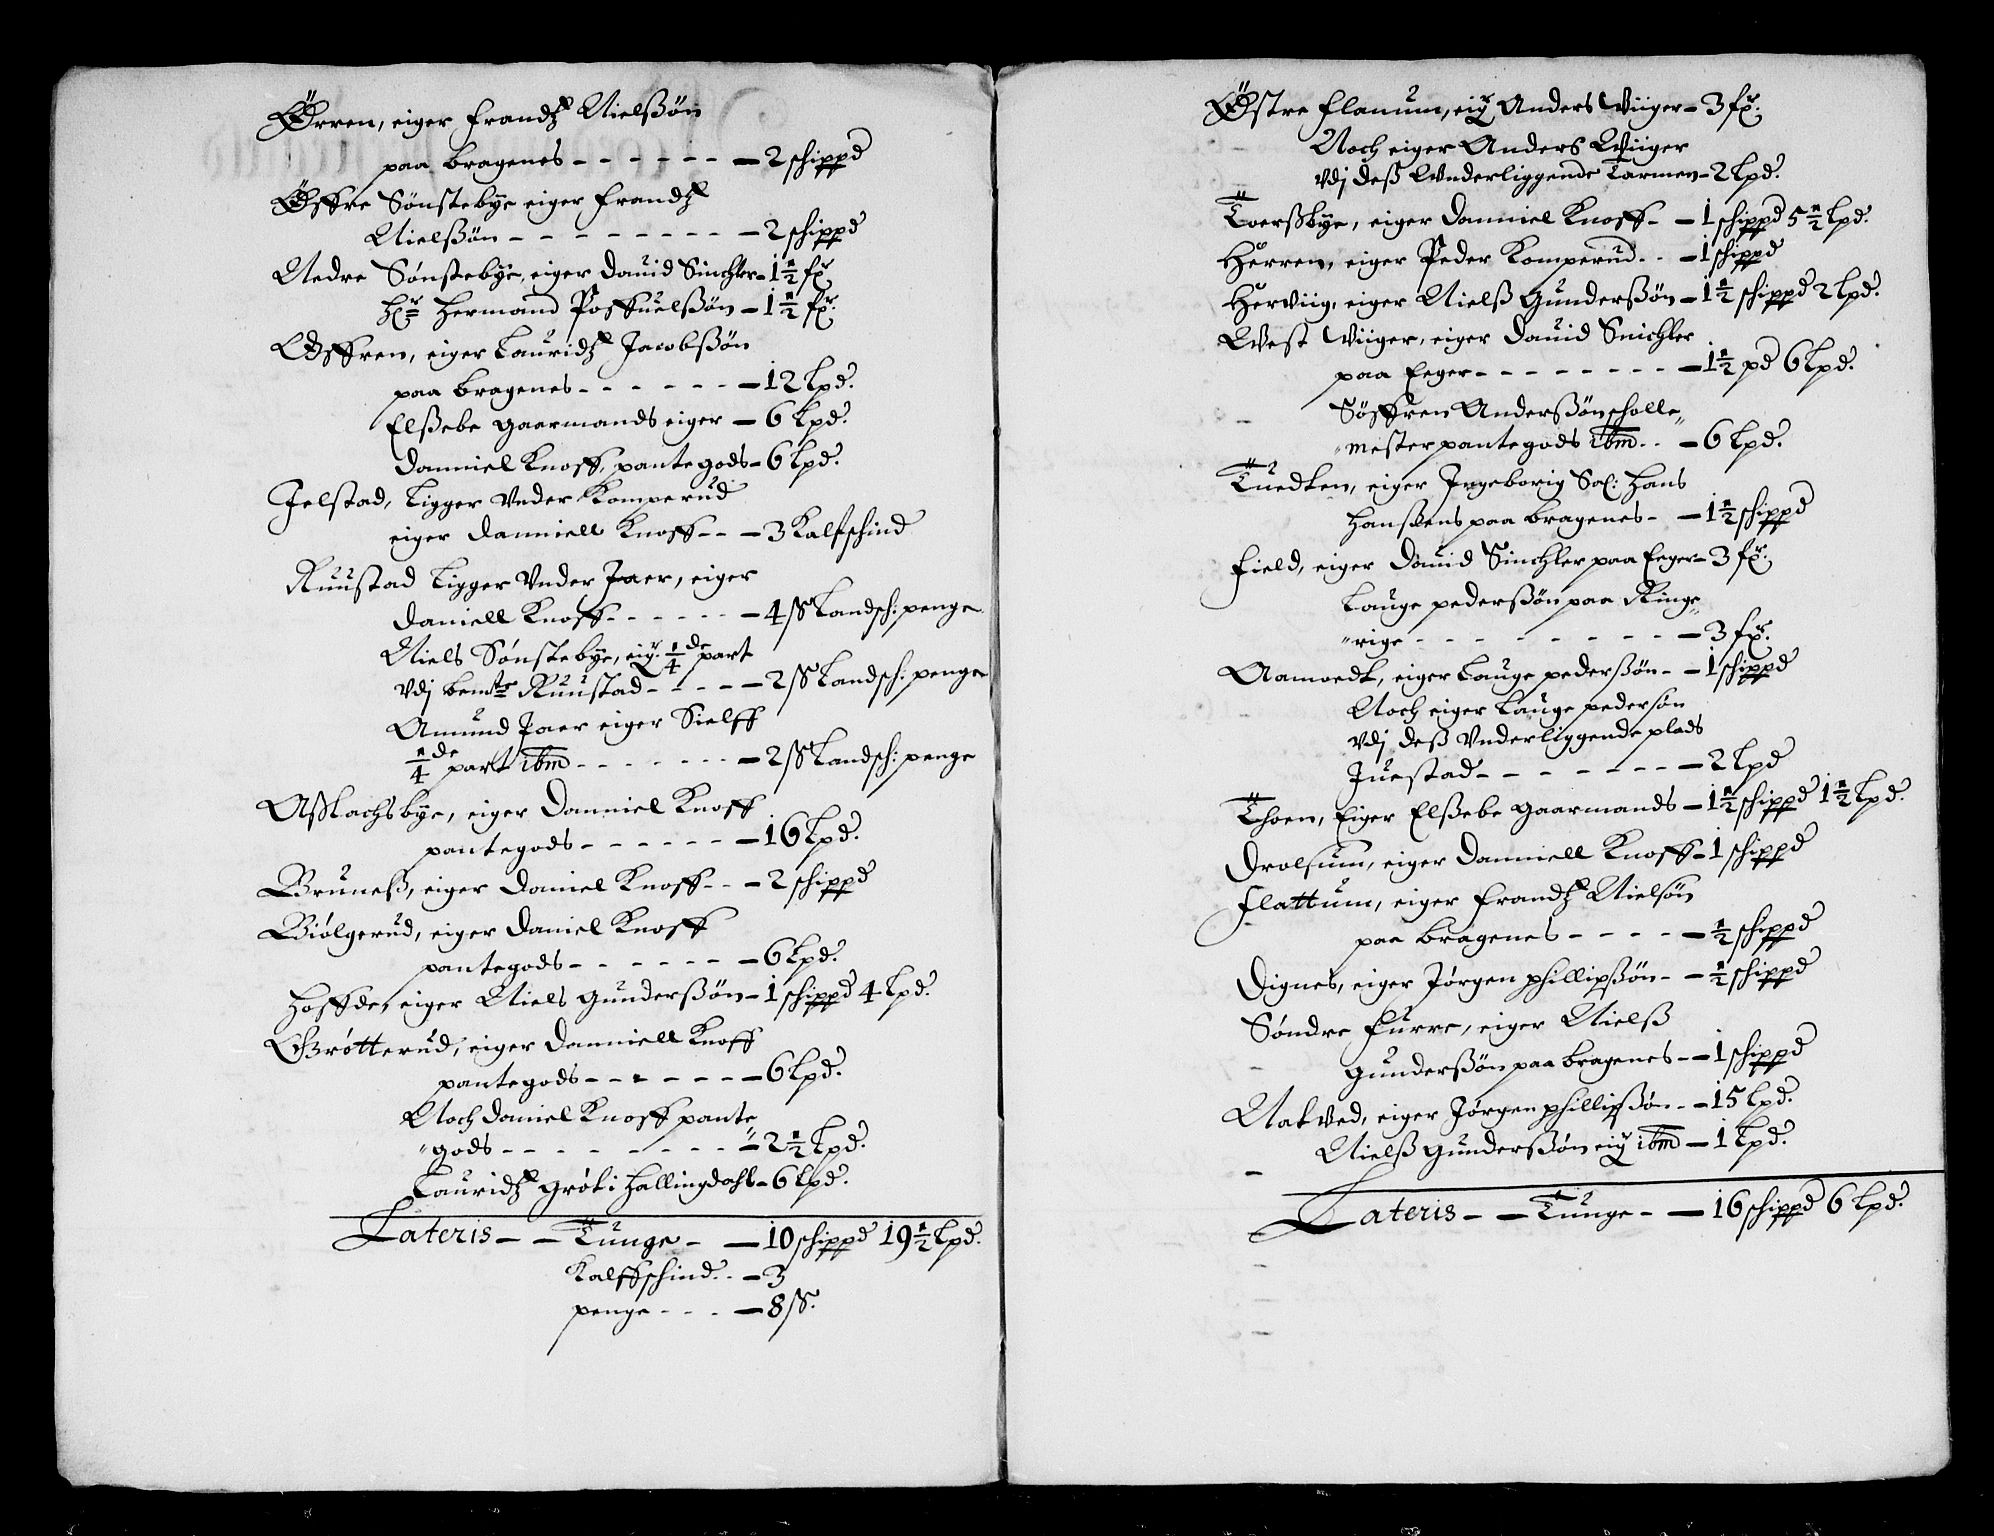 Ørren, eiger Frandtz Nielßøn
paa Bragenes - - - - - - 2 schippd
Øffre Sønstebye eiger Frandtz
Nielßøn - - - - - - - - 2 schippd
Nedre Sønstebye, eiger Dauid Sinchler - 1 1/2 fr
Hr Hermand Poffuelßøn - 1 1/2 fr.
Øffren, eiger Lauridtz Jacobßøn
paa Bragenes - - - - - - 12 Lpd.
Elßebe Gaarmands eiger - 6 Lpd.
Danniel Knoff, pantegods - 6 Lpd.
Jelstad, Ligger Vnder Komperud
eiger Danniell Knoff - - - 3 Kalfschind
Ruustad Ligger Vnder Jaer, eiger
Daniell Knoff - - - - - - 4 ß Landsch: penge
Niels Sønstebye, eig. 1/4 de part
Vdj bemte Ruustad - - - - 2 ß Landsch: penge
Amund Jaer eiger Sielff
1/4 de part ibm - - - - - - - 2 ß Landsch: penge
Aßlachsbye, eiger Danniel Knoff
pantegods - - - - - - 16 Lpd.
Bruneß, eiger Daniel Knoff - - - 2 schippd
Biølgerud, eiger Daniel Knoff
pantegods - - - - - - 6 Lpd.
Hoffde, eiger Niels Gunderßøn - 1 schippd 4 Lpd.
Grøtterud, eiger Danniell Knoff
pantegods - - - - - - 6 Lpd.
Noch Daniel Knoff pante
"gods - - - - - - - - 2 1/2 Lpd.
Lauridtz Grøt i Hallingdahl - 6 Lpd.
Lateris - - Tunge - - 10 schippd 19 1/2 Lpd.
Kalffschind - - 3
penge - - - - 8 ß.
Østre Flanum, eig Anders Wiiger - 3 fr.
Noch eiger Anders Wiiger
Vdj deß Vnderliggende Tarmen - 2 Lpd.
Toerßbye, eiger Danniel Knoff - - 1 schippd 5 1/2 Lpd.
Herren, eiger Peder Komperud - - - 1 schippd
Herviig, eiger Nielß Gunderßøn - 1 1/2 schippd 2 Lpd.
West Wiiger, eiger Dauid Sinchler
paa Eeger - - - - - - - - 1 1/2 pd 6 Lpd.
Søffren Anderßøn scholle"
"mester pantegods ibm - - - 6 Lpd.
Tuedten, eiger Ingeborig Sal: Hans
Hanßens paa Bragenes - - 1 1/2 schippd
Field, eiger Dauid Sinchler paa Eeger - 3 fr.
Lauge pederßøn paa Ringe"
"rige - - - - - - - - - 3 fr.
Aamoedt, eiger Lauge pederßøn - - 1 schippd
Noch eiger Lauge pedersøn
Vdj deß Vnderliggende plads
Juestad - - - - - - - - 2 Lpd
Thoen, Eiger Elßebe Gaarmands - 1 1/2 schippd 1 1/2 Lpd.
Drolsum, eiger Danniell Knoff - 1 schippd
Flattum, eiger Frandtz Nielsøn
paa Bragenes - - - - - 1/2 schippd
Dignes, eiger Jørgen phillipßøn - - 1/2 schippd
Søndre Furre, eiger Nielß
Gunderßøn paa Bragenes - - 1 schippd
Nakved, eiger Jørgen phillipßøn - - 15 Lpd.
Nielß Gunderßøn eig ibm - 1 Lpd.
Lateris - - Tunge - - 16 schippd 6 Lpd.